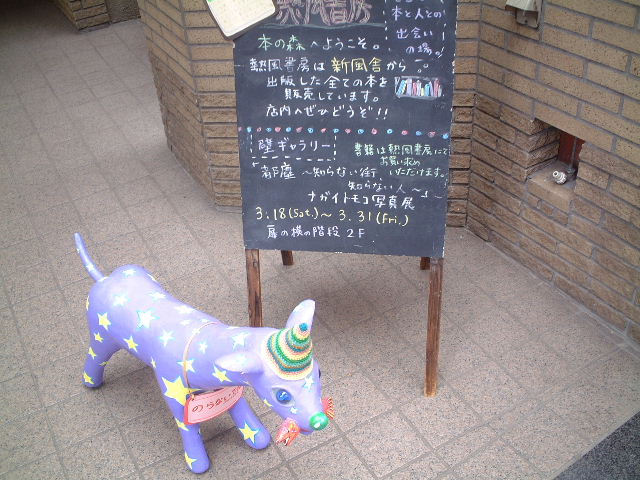 熱風書房
本と人との
出会い
の場
本の森へようこそ。
熱風書房は新風舎から
出版した全ての本を
販売しています。
店内へぜひどうぞ!!
壁ギャラリー
書籍は熱風書房にて
お買い求め
いただけます。
都塵 〜知らない街
知らない人〜
ナガイトモコ写真展
3.18(Sat.)〜3.31(Fri.)
扉の横の階段2F
のらない